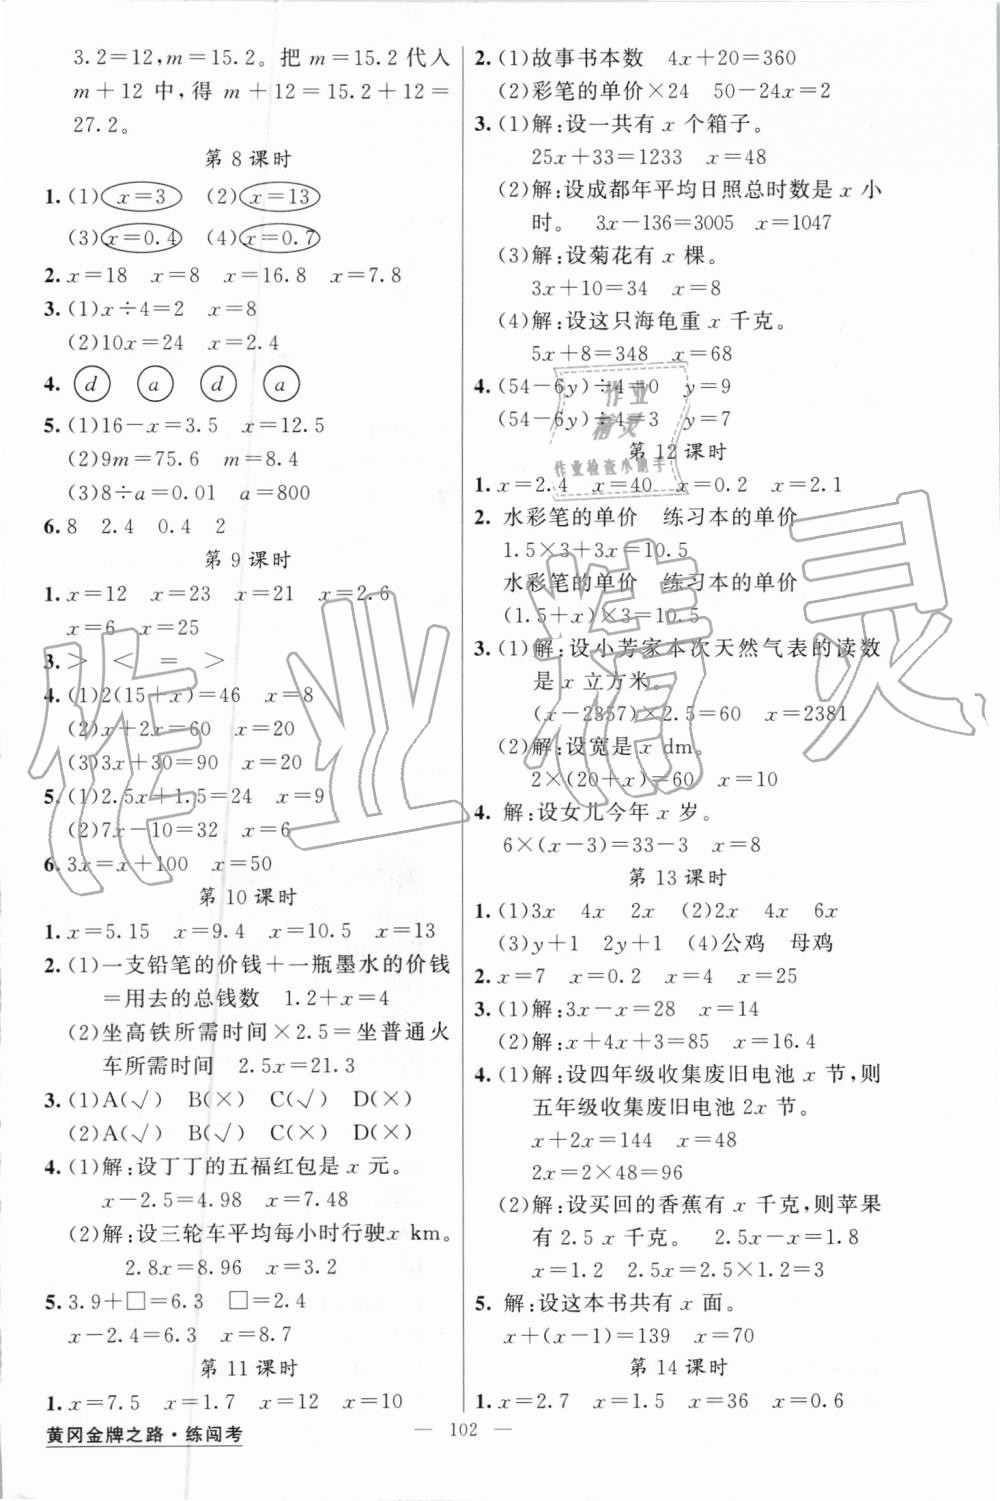 3.2=12,m=15.2。把 m=15.2代入
m+12中,得 m+12=15.2+12=
27.2。
第 8 课时
1. (1) x=3 (2) x=13
(3) x=0.4 (4) x=0.7
2. x=18 x=8 x=16.8 x=7.8
3. (1)x÷4=2 x=8
(2)10x=24 x=2.4
4. d a d a
5. (1)16-x=3.5 x=12.5
(2)9m=75.6 m=8.4
(3)8÷a=0.01 a=800
6. 8 2.4 0.4 2
第 9 课时
1. x=12 x=23 x=21 x=2.6
x=6 x=25
3. > < = >
4. (1)2(15+x)=46 x=8
(2)x+2x=60 x=20
(3)3x+30=90 x=20
5. (1)2.5x+1.5=24 x=9
(2)7x-10=32 x=6
6. 3x=x+100 x=50
第 10 课时
1. x=5.15 x=9.4 x=10.5 x=13
2. (1)一支铅笔的价钱+一瓶墨水的价钱
=用去的总钱数 1.2+x=4
(2)坐高铁所需时间×2.5=坐普通火
车所需时间 2.5x=21.3
3. (1)A(√) B(×) C(√) D(×)
(2)A(√) B(√) C(×) D(×)
4. (1)解:设丁丁的五福红包是 x 元。
x-2.5=4.98 x=7.48
(2)解:设三轮车平均每小时行驶x km。
2.8x=8.96 x=3.2
5. 3.9+□=6.3 □=2.4
x-2.4=6.3 x=8.7
第 11 课时
1. x=7.5 x=1.7 x=12 x=10
黄冈金牌之路·练闯考
2. (1)故事书本数 4x+20=360
(2)彩笔的单价×24 50-24x=2
3. (1)解:设一共有 x 个箱子。
25x+33=1233 x=48
(2)解:设成都年平均日照总时数是 x 小
时。 3x-136=3005 x=1047
(3)解:设菊花有 x 棵。
3x+10=34 x=8
(4)解:设这只海龟重 x 千克。
5x+8=348 x=68
4. (54-6y)÷4=0 y=9
(54-6y)÷4=3 y=7
第 12 课时
1. x=2.4 x=40 x=0.2 x=2.1
2. 水彩笔的单价 练习本的单价
1.5×3+3x=10.5
水彩笔的单价 练习本的单价
(1.5+x)×3=10.5
3. (1)解:设小芳家本次天然气表的读数
是 x 立方米。
(x-2357)×2.5=60 x=2381
(2)解:设宽是 x dm。
2×(20+x)=60 x=10
4. 解:设女儿今年 x 岁。
6×(x-3)=33-3 x=8
第 13 课时
1. (1)3x 4x 2x (2)2x 4x 6x
(3)y+1 2y+1 (4)公鸡 母鸡
2. x=7 x=0.2 x=4 x=25
3. (1)解:3x-x=28 x=14
(2)解:x+4x+3=85 x=16.4
4. (1)解:设四年级收集废旧电池 x 节,则
五年级收集废旧电池 2x 节。
x+2x=144 x=48
2x=2×48=96
(2)解:设买回的香蕉有 x 千克,则苹果
有 2.5 x 千克。 2.5x-x=1.8
x=1.2 2.5x=2.5×1.2=3
5. 解:设这本书共有 x 面。
x+(x-1)=139 x=70
第 14 课时
1. x=2.7 x=1.5 x=36 x=0.6
— 102 —
作业精灵
作业
精灵
作业检查小助手